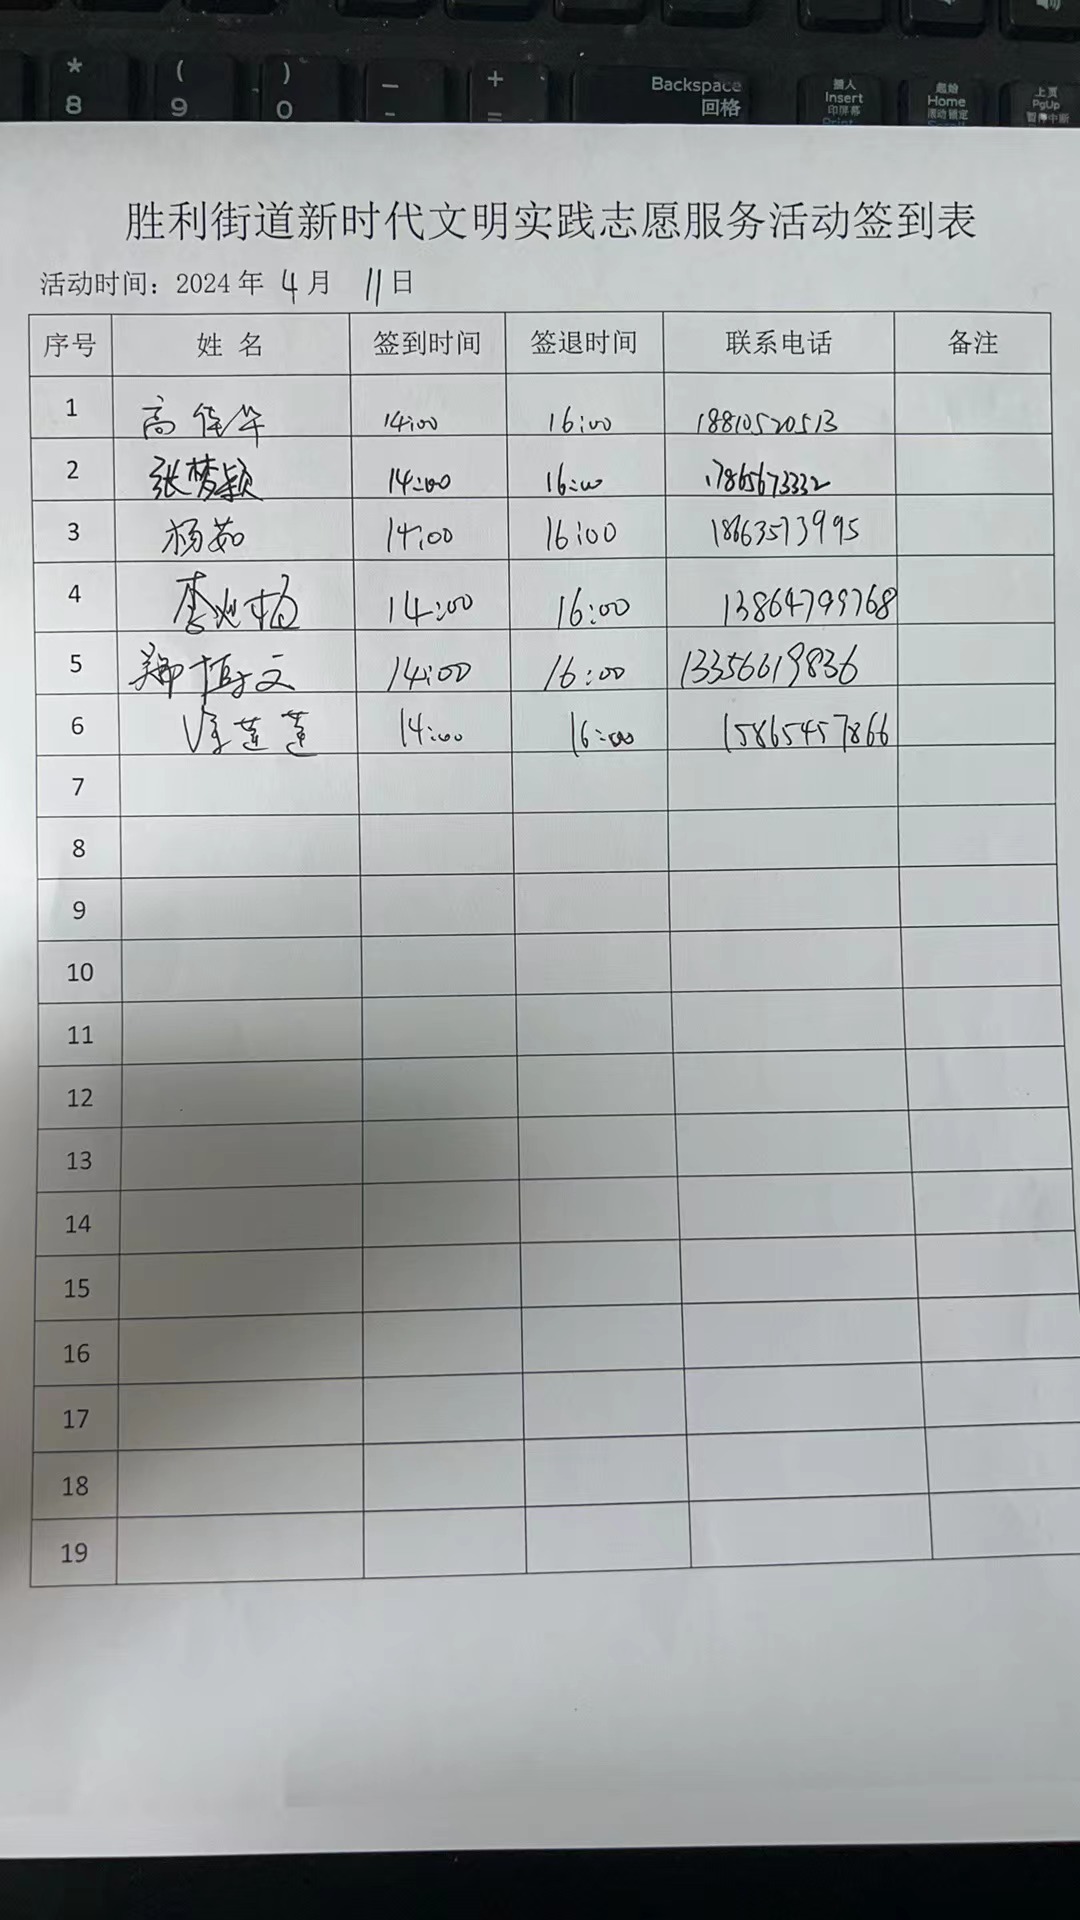 * ( ) — +
8 9 0 - =
Backspace
回格
插入
Insert
印屏幕
起始
Home
滚动锁定
上页
PgUp
暂停中断
胜利街道新时代文明实践志愿服务活动签到表
活动时间：2024年 4月 11日
序号 姓 名 签到时间 签退时间 联系电话 备注
1 高佳华 14:00 16:00 18810520513
2 张梦颖 14:00 16:00 17865673332
3 杨茹 14:00 16:00 18663573995
4 李 14:00 16:00 13864799768
5 郑恒文 14:00 16:00 13356619836
6 徐莲莲 14:00 16:00 15865457866
7
8
9
10
11
12
13
14
15
16
17
18
19